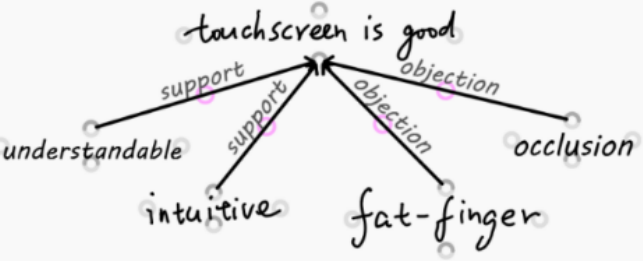 touchscreen is good
support
support
objection
objection
understandable
intuitive
fat-finger
occlusion